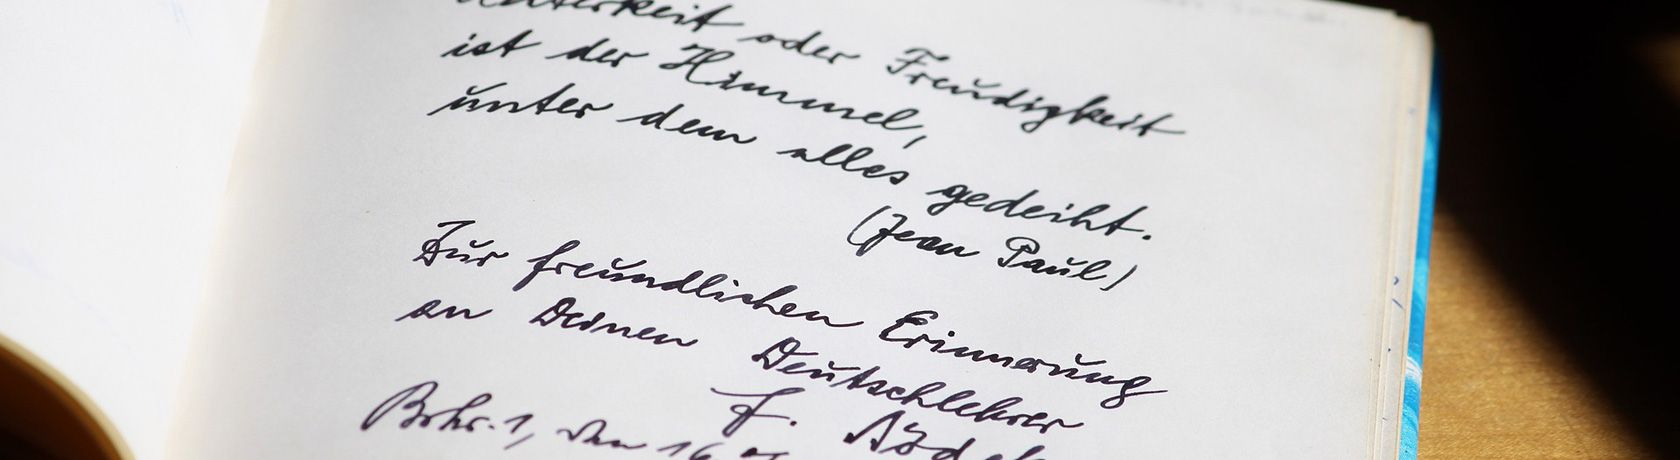 oder Freudigkeit
ist der Himmel,
unter dem alles gedeiht.
(Jean Paul)
Zur freundlichen Erinnerung
an Deinen Deutschlehrer
F.
den 16